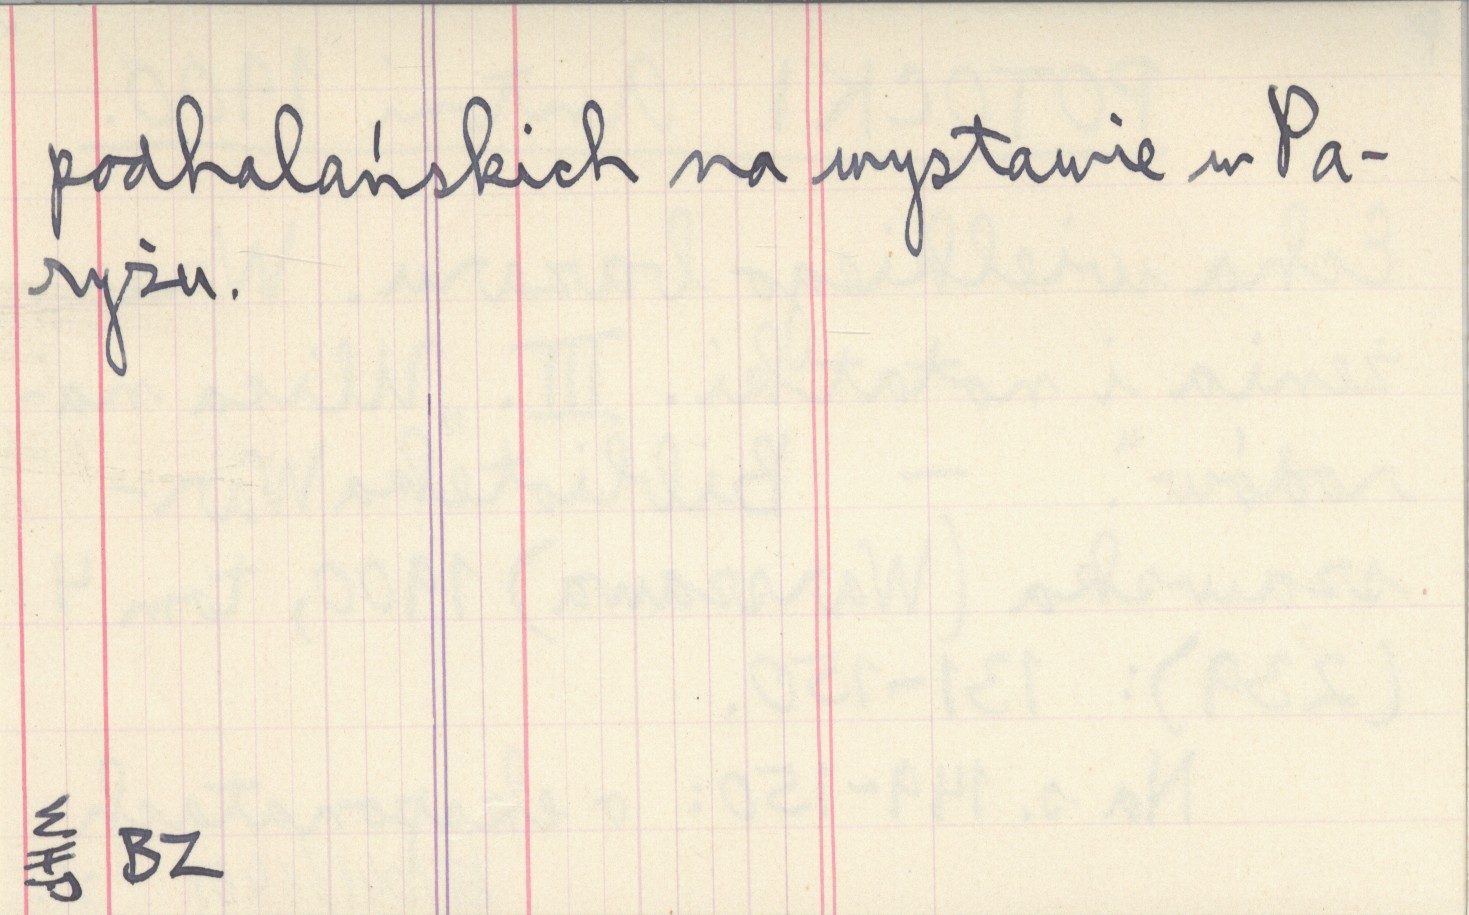 podhalańskich na wystawie w Pa-
ryżu.
WHP
BZ